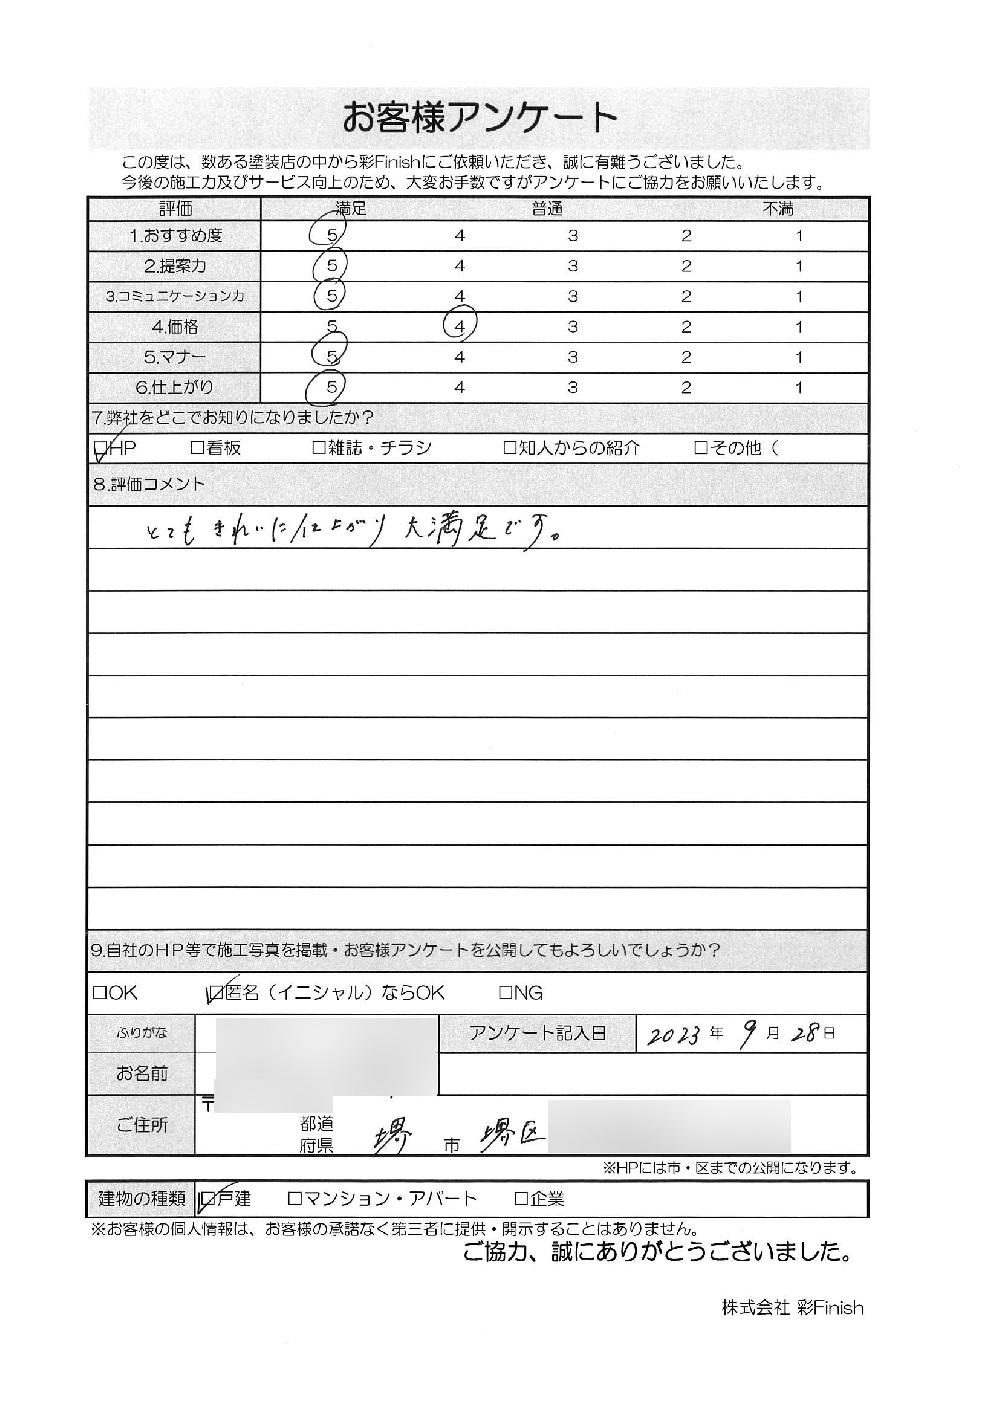 お客様アンケート
この度は、数ある塗装店の中から彩Finishにご依頼いただき、誠に有難うございました。
今後の施工力及びサービス向上のため、大変お手数ですがアンケートにご協力をお願いいたします。
評価 満足 普通 不満
1.おすすめ度 5 4 3 2 1
2.提案力 5 4 3 2 1
3.コミュニケーション力 5 4 3 2 1
4.価格 5 4 3 2 1
5.マナー 5 4 3 2 1
6.仕上がり 5 4 3 2 1
7.弊社をどこでお知りになりましたか？
☑HP □看板 □雑誌・チラシ □知人からの紹介 □その他（
8.評価コメント
とてもきれいに仕上がり大満足です。
9.自社のＨＰ等で施工写真を掲載・お客様アンケートを公開してもよろしいでしょうか？
□OK ☑匿名（イニシャル）ならOK □NG
ふりがな アンケート記入日 2023年 9月 28日
お名前
〒
ご住所 都道府県 堺市 堺区
※HPには市・区までの公開になります。
建物の種類 ☑戸建 □マンション・アパート □企業
※お客様の個人情報は、お客様の承諾なく第三者に提供・開示することはありません。
ご協力、誠にありがとうございました。
株式会社 彩Finish